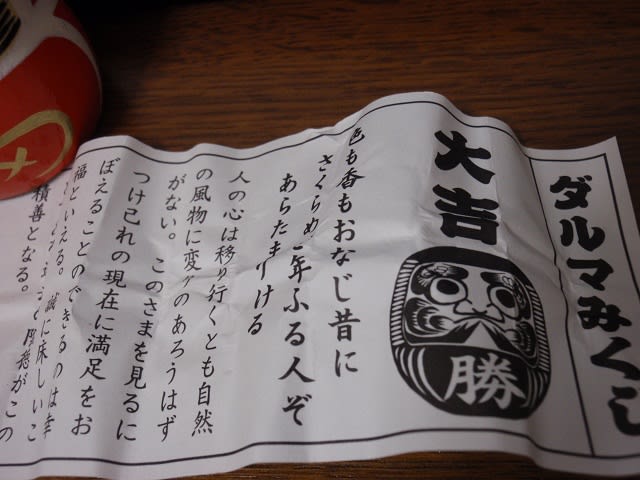 ダルマみくじ
大吉
勝
色も香もおなじ昔に
さくらめど年ふる人ぞ
あらたまりける
人の心は移り行くとも自然
の風物に変りのあろうはず
がない。このさまを見るに
つけ已れの現在に満足をお
ぼえることのできるのは幸
福といえる。誠に床しいこ
積善となる。
がこの